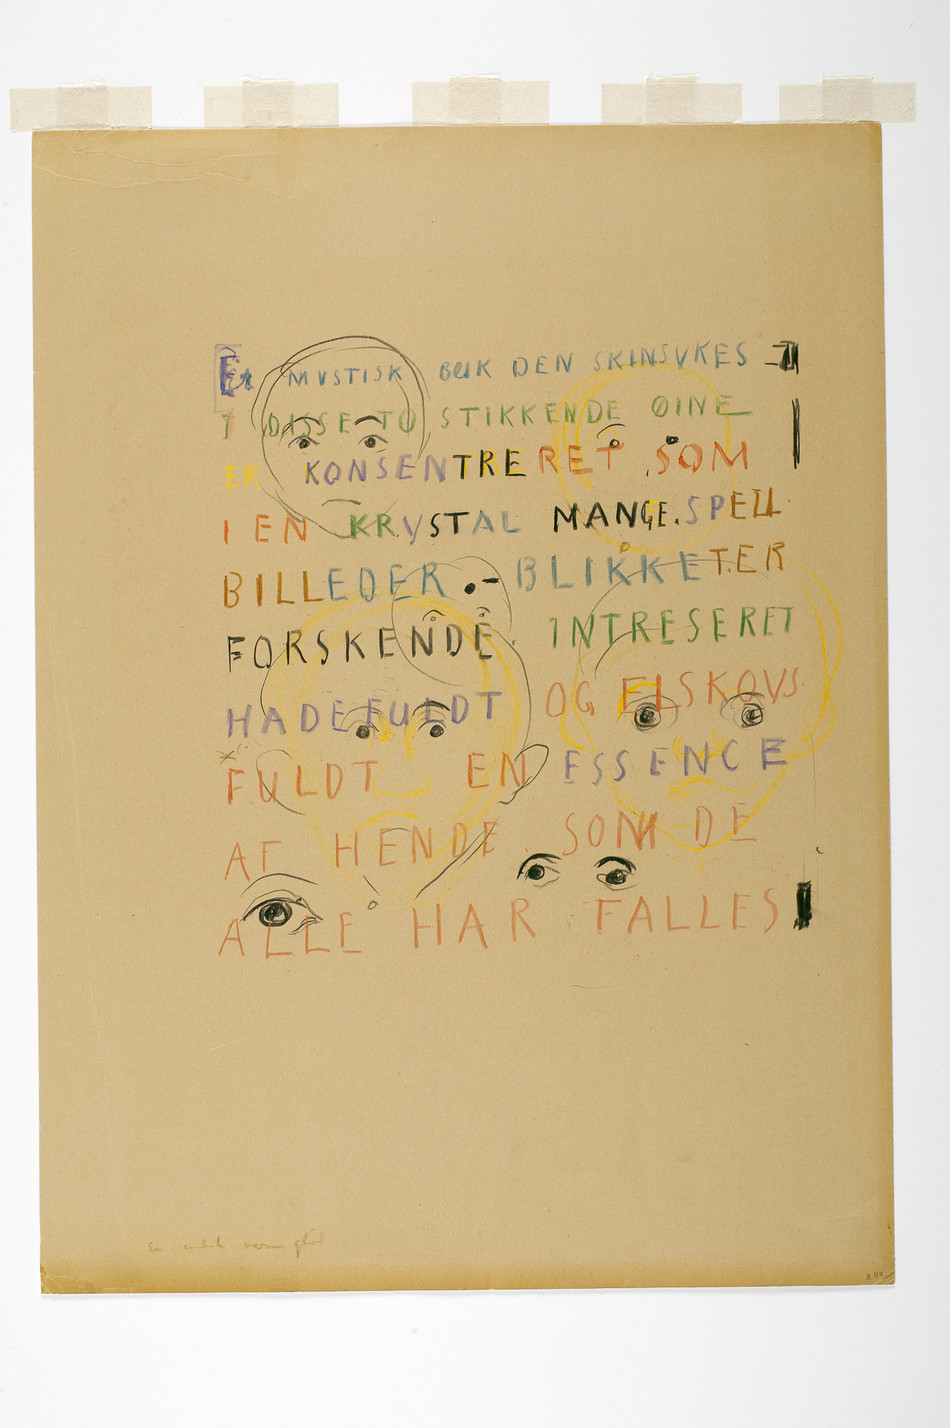 Et MYSTISK BLIK DEN SKINSYKES
I DISSE TO STIKKENDE ØINE
ER KONSENTRERET SOM
I EN KRYSTAL MANGE. SPEIL
BILLEDER - BLIKKET.ER
FORSKENDE. INTRESERET
HADEFULDT OG ELSKOVS
FULDT EN ESSENCE
AF HENDE. SOM DE
ALLE HAR FALLES